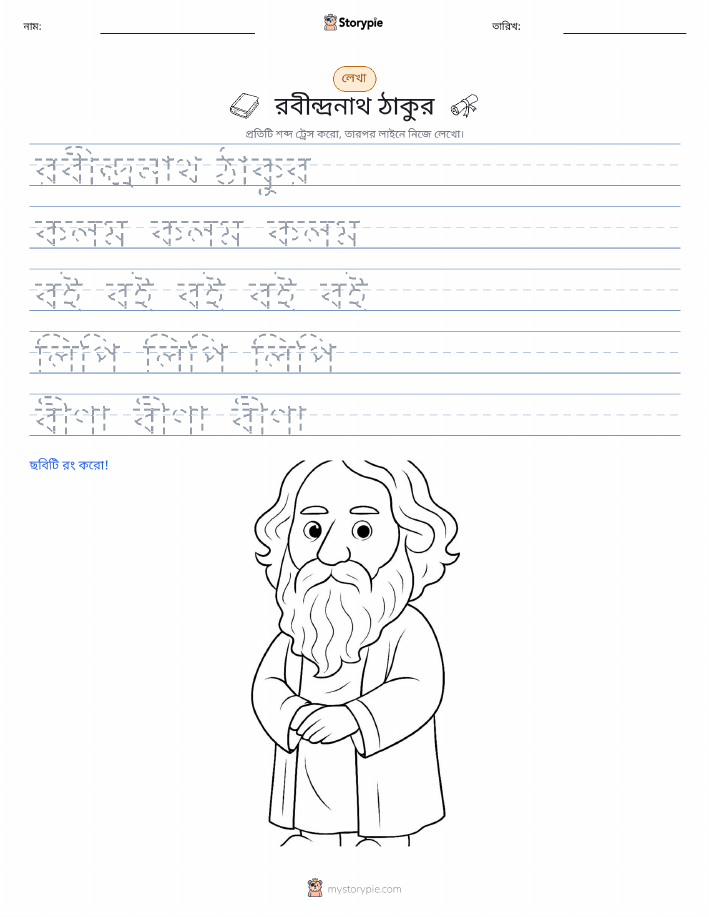 নাম:
Storypie
তারিখ:
লেখা
রবীন্দ্রনাথ ঠাকুর
প্রতিটি শব্দ ট্রেস করো, তারপর লাইনে নিজে লেখো।
রবীন্দ্রনাথ ঠাকুর
কলম কলম কলম
বই বই বই বই বই
লিপি লিপি লিপি
বীণা বীণা বীণা
ছবিটি রং করো!
mystorypie.com